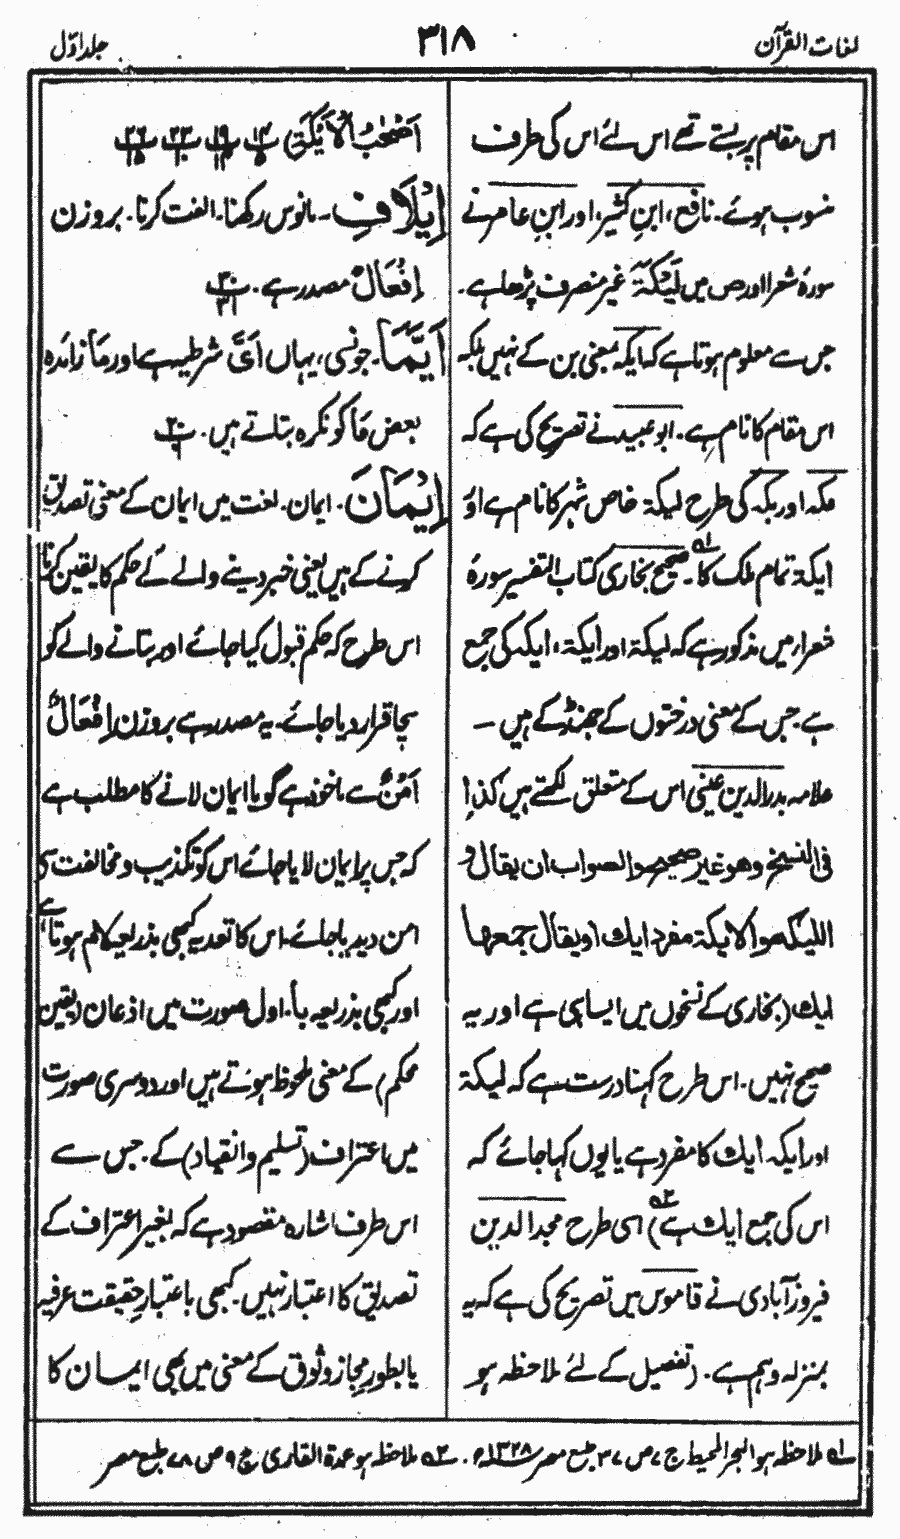 لغات القرآن
٣١٨
جلد اوّل
اس مقام پر بستے تھے اس لئے اس کی طرف
منسوب ہوئے۔ نافع، ابنِ کثیر، اور ابنِ عامر نے
سورۂ شعرا اور ص میں لَیْکَۃَ غیر منصرف پڑھا ہے۔
جس سے معلوم ہوتا ہے کہ ایکہ بمعنی بن کے نہیں بلکہ
اس مقام کا نام ہے۔ ابو عبید نے تصریح کی ہے کہ
مکہ اور بکہ کی طرح لیکۃ خاص شہر کا نام ہے اور
ایکۃ تمام ملک کا۔ صحیح بخاری کتاب التفسیر سورۂ
شعراء میں مذکور ہے کہ لیکۃ اور ایکۃ، ایکہ کی جمع
ہے۔ جس کے معنی درختوں کے جھنڈ کے ہیں ۔
علامہ بدر الدین عینی اس کے متعلق لکھتے ہیں کذا
فی النسخ وھو غیر صحیح والصواب ان یقال
اللیکہ والایکۃ مفرد ایک او یقال جمعھا
ایک (بخاری کے نسخوں میں ایسا ہی ہے اور یہ
صحیح نہیں۔ اس طرح کہنا درست ہے کہ لیکۃ
اور ایکہ ایک کا مفرد ہے یا یوں کہا جائے کہ
اس کی جمع ایک ہے) اسی طرح مجد الدین
فیروز آبادی نے قاموس میں تصریح کی ہے کہ یہ
بمنزلہ وہم ہے۔ (تفصیل کے لئے ملاحظہ ہو
اَصْحٰبُ الْاَیْکَۃِ
اِیْلَافِ ۔ مانوس رکھنا۔ الفت کرنا۔ بروزن
اِفْعَالٌ مصدر ہے۔
اَیَّمَا۔ جونسی، یہاں اَیَّ شرطیہ ہے اور مَا زائدہ
بعض مَا کو نکرہ بتاتے ہیں۔
اِیْمَانَ۔ ایمان۔ لغت میں ایمان کے معنی تصدیق
کرنے کے ہیں یعنی خبر دینے والے کے حکم کا یقین کرنا
اس طرح کہ حکم قبول کیا جائے اور بتانے والے کو
سچا قرار دیا جائے۔ یہ مصدر ہے بروزن اِفْعَالٌ
اَمْنٌ سے ماخوذ ہے گویا ایمان لانے کا مطلب ہے
کہ جس پر ایمان لایا جائے اس کو تکذیب و مخالفت سے
امن دیدیا جائے۔ اس کا تعدیہ کبھی بذریعہ لام ہوتا ہے
اور کبھی بذریعہ بأ۔ اول صورت میں اذعان (یقین
محکم) کے معنی ملحوظ ہوتے ہیں اور دوسری صورت
میں اعتراف (تسلیم وانقیاد) کے۔ جس سے
اس طرف اشارہ مقصود ہے کہ بغیر اعتراف کے
تصدیق کا اعتبار نہیں۔ کبھی باعتبارِ حقیقت عرفیہ
یا بطورِ مجاز وثوق کے معنی میں بھی ایمان کا
لے ملاحظہ ہو البحر المحیط ج ٧ ص ٣٧ طبع مصر ١٣٢٨ھ۔ ٢ے ملاحظہ ہو عمدۃ القاری ج ٩ ص ٧٨ طبع مصر